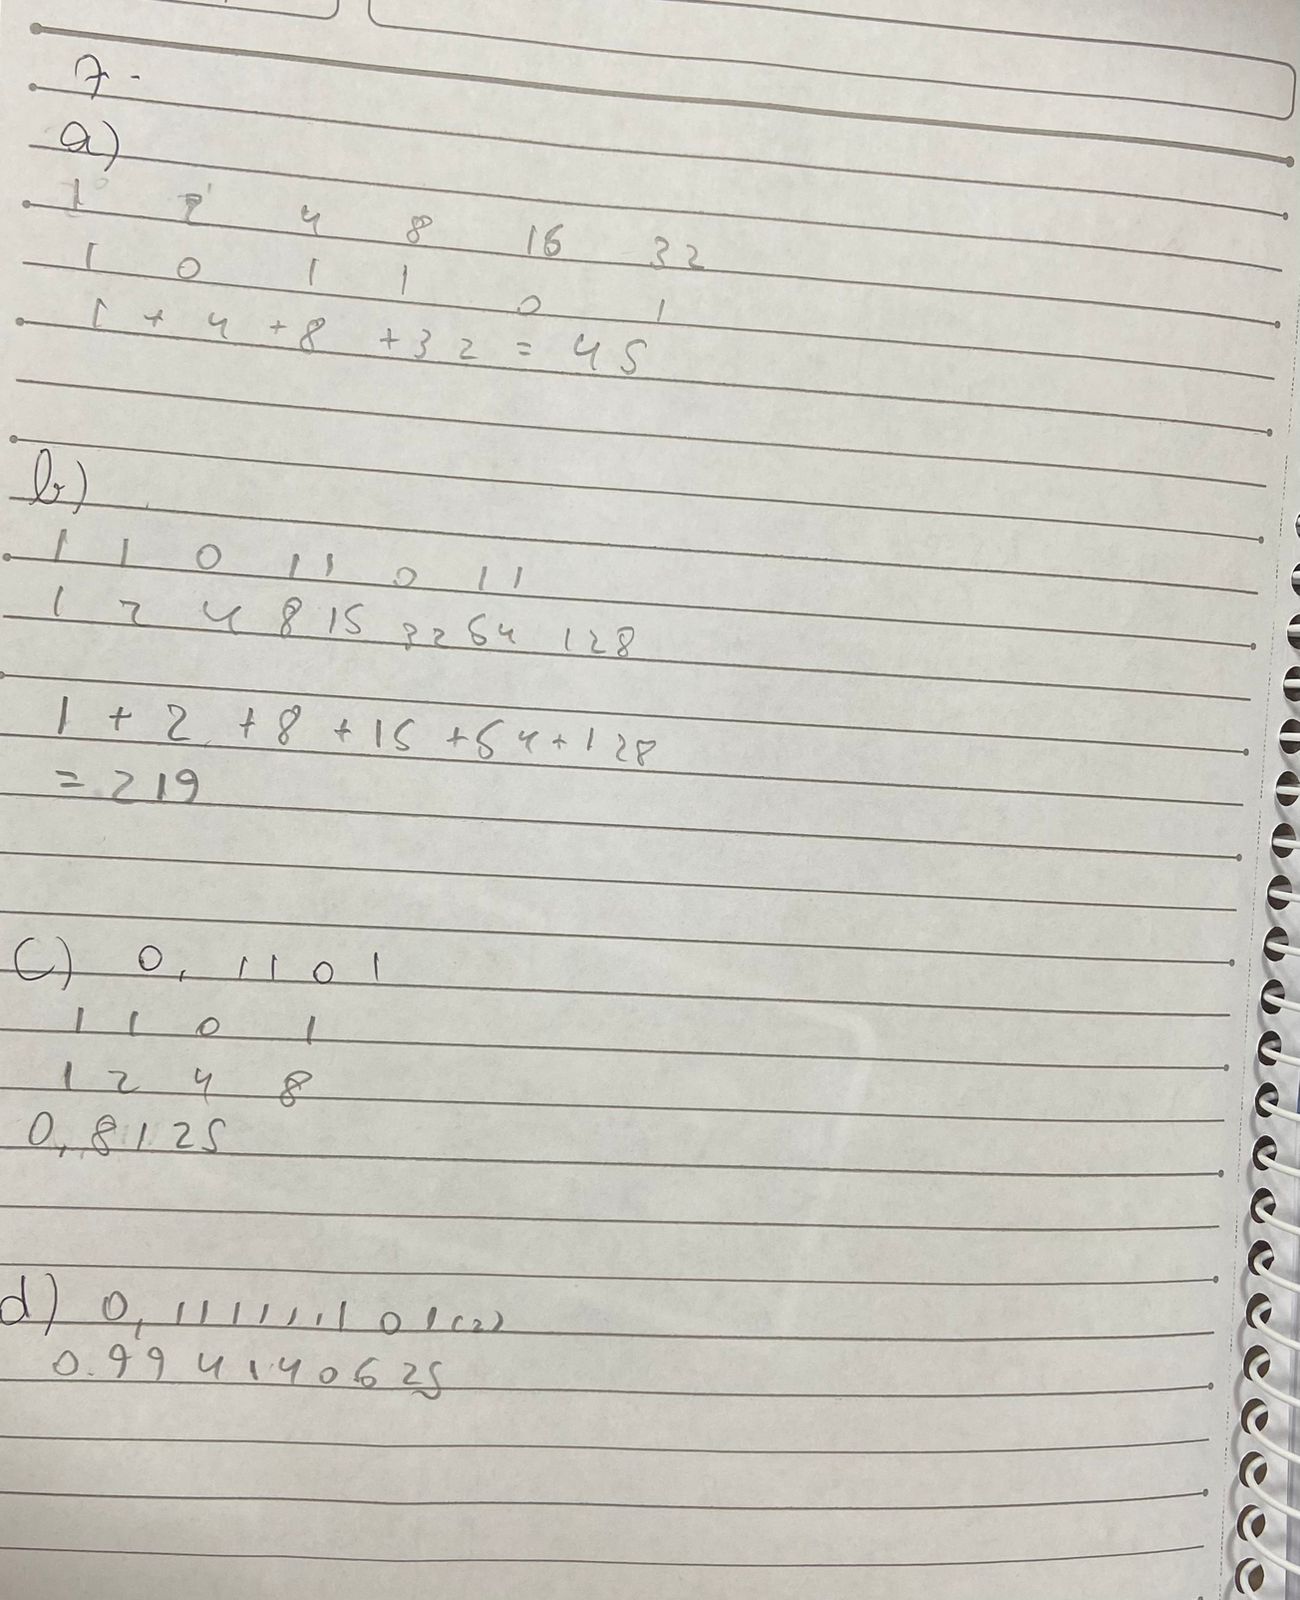 7-
a)
1 2 4 8 16 32
1 0 1 1 0 1
1 + 4 + 8 + 32 = 45
b)
1 1 0 1 1 0 1 1
1 2 4 8 16 32 64 128
1 + 2 + 8 + 16 + 64 + 128
= 219
c) 0,1101
1 1 0 1
1 2 4 8
0,8125
d) 0,111111101(2)
0.994140625